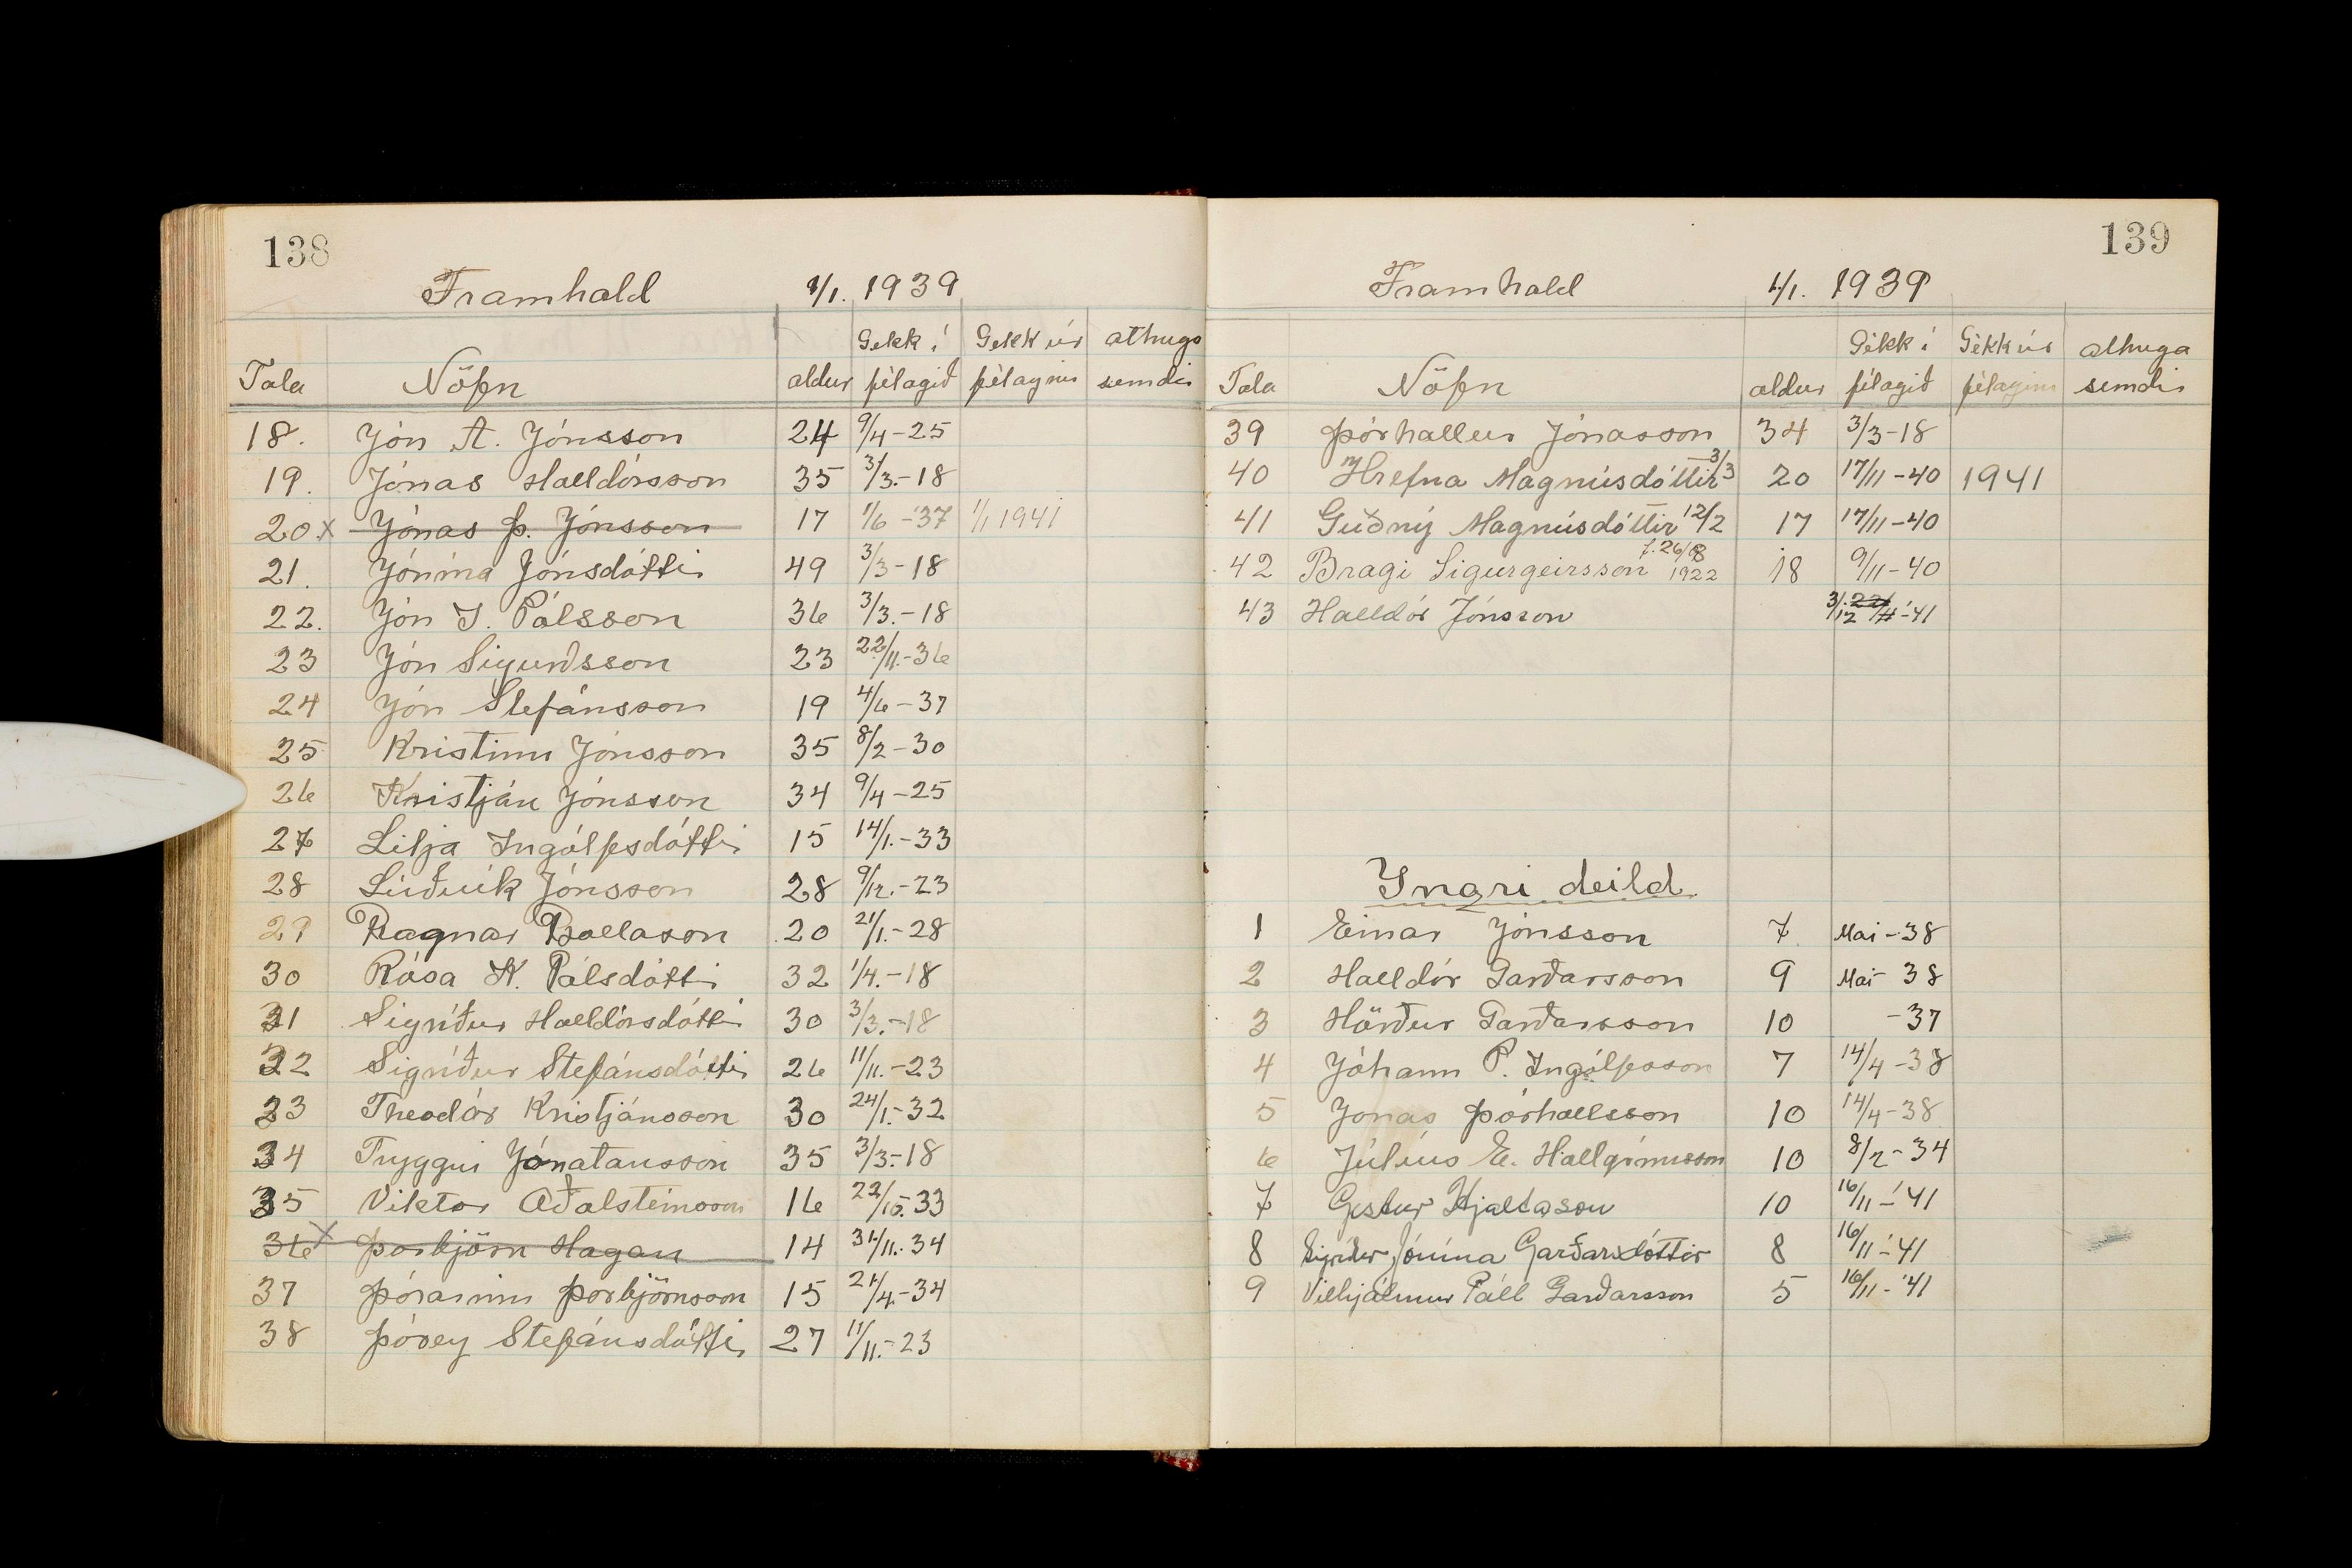 138
Framhald 1/1. 1939
Gekk í Gekk úr athuga
Tala Nöfn aldur félagið félaginu semdir
18. Jón A. Jónsson 24 9/4-25
19. Jónas Halldórsson 35 3/3.-18
20x Jónas Þ. Jónsson 17 1/6-'37 1/1 1941
21. Jónína Jónsdóttir 49 3/3-18
22. Jón I. Pálsson 36 3/3.-18
23 Jón Sigurðsson 23 22/11.-36
24 Jón Stefánsson 19 4/6-37
25 Kristinn Jónsson 35 8/2-30
26 Kristján Jónsson 34 9/4-25
27 Lilja Ingólfsdóttir 15 14/1.-33
28 Lúðvík Jónsson 28 9/12.-23
29 Ragnar Bollason 20 21/1.-28
30 Rósa K. Pálsdóttir 32 1/4.-18
31 Sigríður Halldórsdóttir 30 3/3.-18
32 Sigríður Stefánsdóttir 26 11/11.-23
33 Theodór Kristjánsson 30 24/1.-32
34 Tryggvi Jónatansson 35 3/3.-18
35 Viktor Aðalsteinsson 16 22/10.33
36x Þorbjörn Hagan 14 31/11.-34
37 Þórarinn Þorbjörnsson 15 21/4-34
38 Þórey Stefánsdóttir 27 11/11.-23
139
Framhald 1/1. 1939
Gekk í Gekk úr athuga
Tala Nöfn aldur félagið félaginu semdir
39 Þórhallur Jónasson 34 3/3-18
40 Hrefna Magnúsdóttir 3/3 20 17/11-40 1941
41 Guðný Magnúsdóttir 12/2 17 17/11-40
42 Bragi Sigurgeirsson f. 26/8 1922 18 9/11-40
43 Halldór Jónsson 3/12 22/11-'41
Yngri deild.
1 Einar Jónsson 7 Mai-38
2 Halldór Garðarsson 9 Mai- 38
3 Hörður Garðarsson 10 -37
4 Jóhann P. Ingólfsson 7 14/4-38
5 Jónas Þórhallsson 10 14/4-38
6 Júlíus E. Hallgrímsson 10 8/2-34
7 Gestur Hjaltason 10 16/11-'41
8 Sigríður Jónína Garðarsdóttir 8 16/11-'41
9 Vilhjálmur Páll Garðarsson 5 16/11-'41